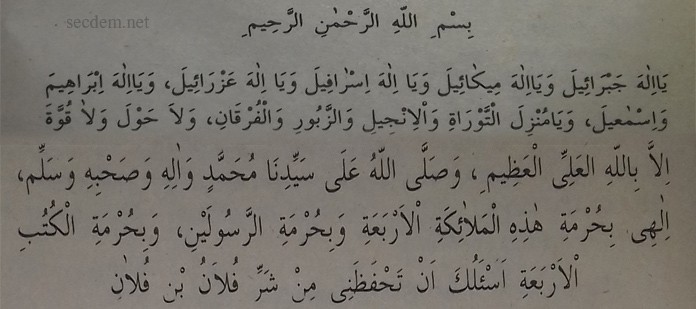 secdem.net
بِسْمِ اللّٰهِ الرَّحْمٰنِ الرَّحِيمِ
يَااِلٰهَ جَبْرَائِيلَ وَيَااِلٰهَ مِيكَائِيلَ وَيَا اِلٰهَ اِسْرَافِيلَ وَيَا اِلٰهَ عَزْرَائِيلَ، وَيَااِلٰهَ اِبْرَاهِيمَ
وَاِسْمٰعِيلَ، وَيَامُنْزِلَ التَّوْرَاةِ وَاْلاِنْجِيلِ وَالزَّبُورِ وَالْفُرْقَانِ، وَلاَ حَوْلَ وَلاَ قُوَّةَ
اِلاَّ بِاللّٰهِ الْعَلِىِّ الْعَظِيمِ، وَصَلَّى اللّٰهُ عَلَى سَيِّدِنَا مُحَمَّدٍ وَاٰلِهِ وَصَحْبِهِ وَسَلِّم،
اِلٰهِى بِحُرْمَةِ هٰذِهِ الْمَلاَئِكَةِ اْلاَرْبَعَةِ وَبِحُرْمَةِ الرَّسُولَيْنِ، وَبِحُرْمَةِ الْكُتُبِ
اْلاَرْبَعَةِ اَسْئَلُكَ اَنْ تَحْفَظَنِى مِنْ شَرِّ فُلاَنُ بْنِ فُلاَنٍ